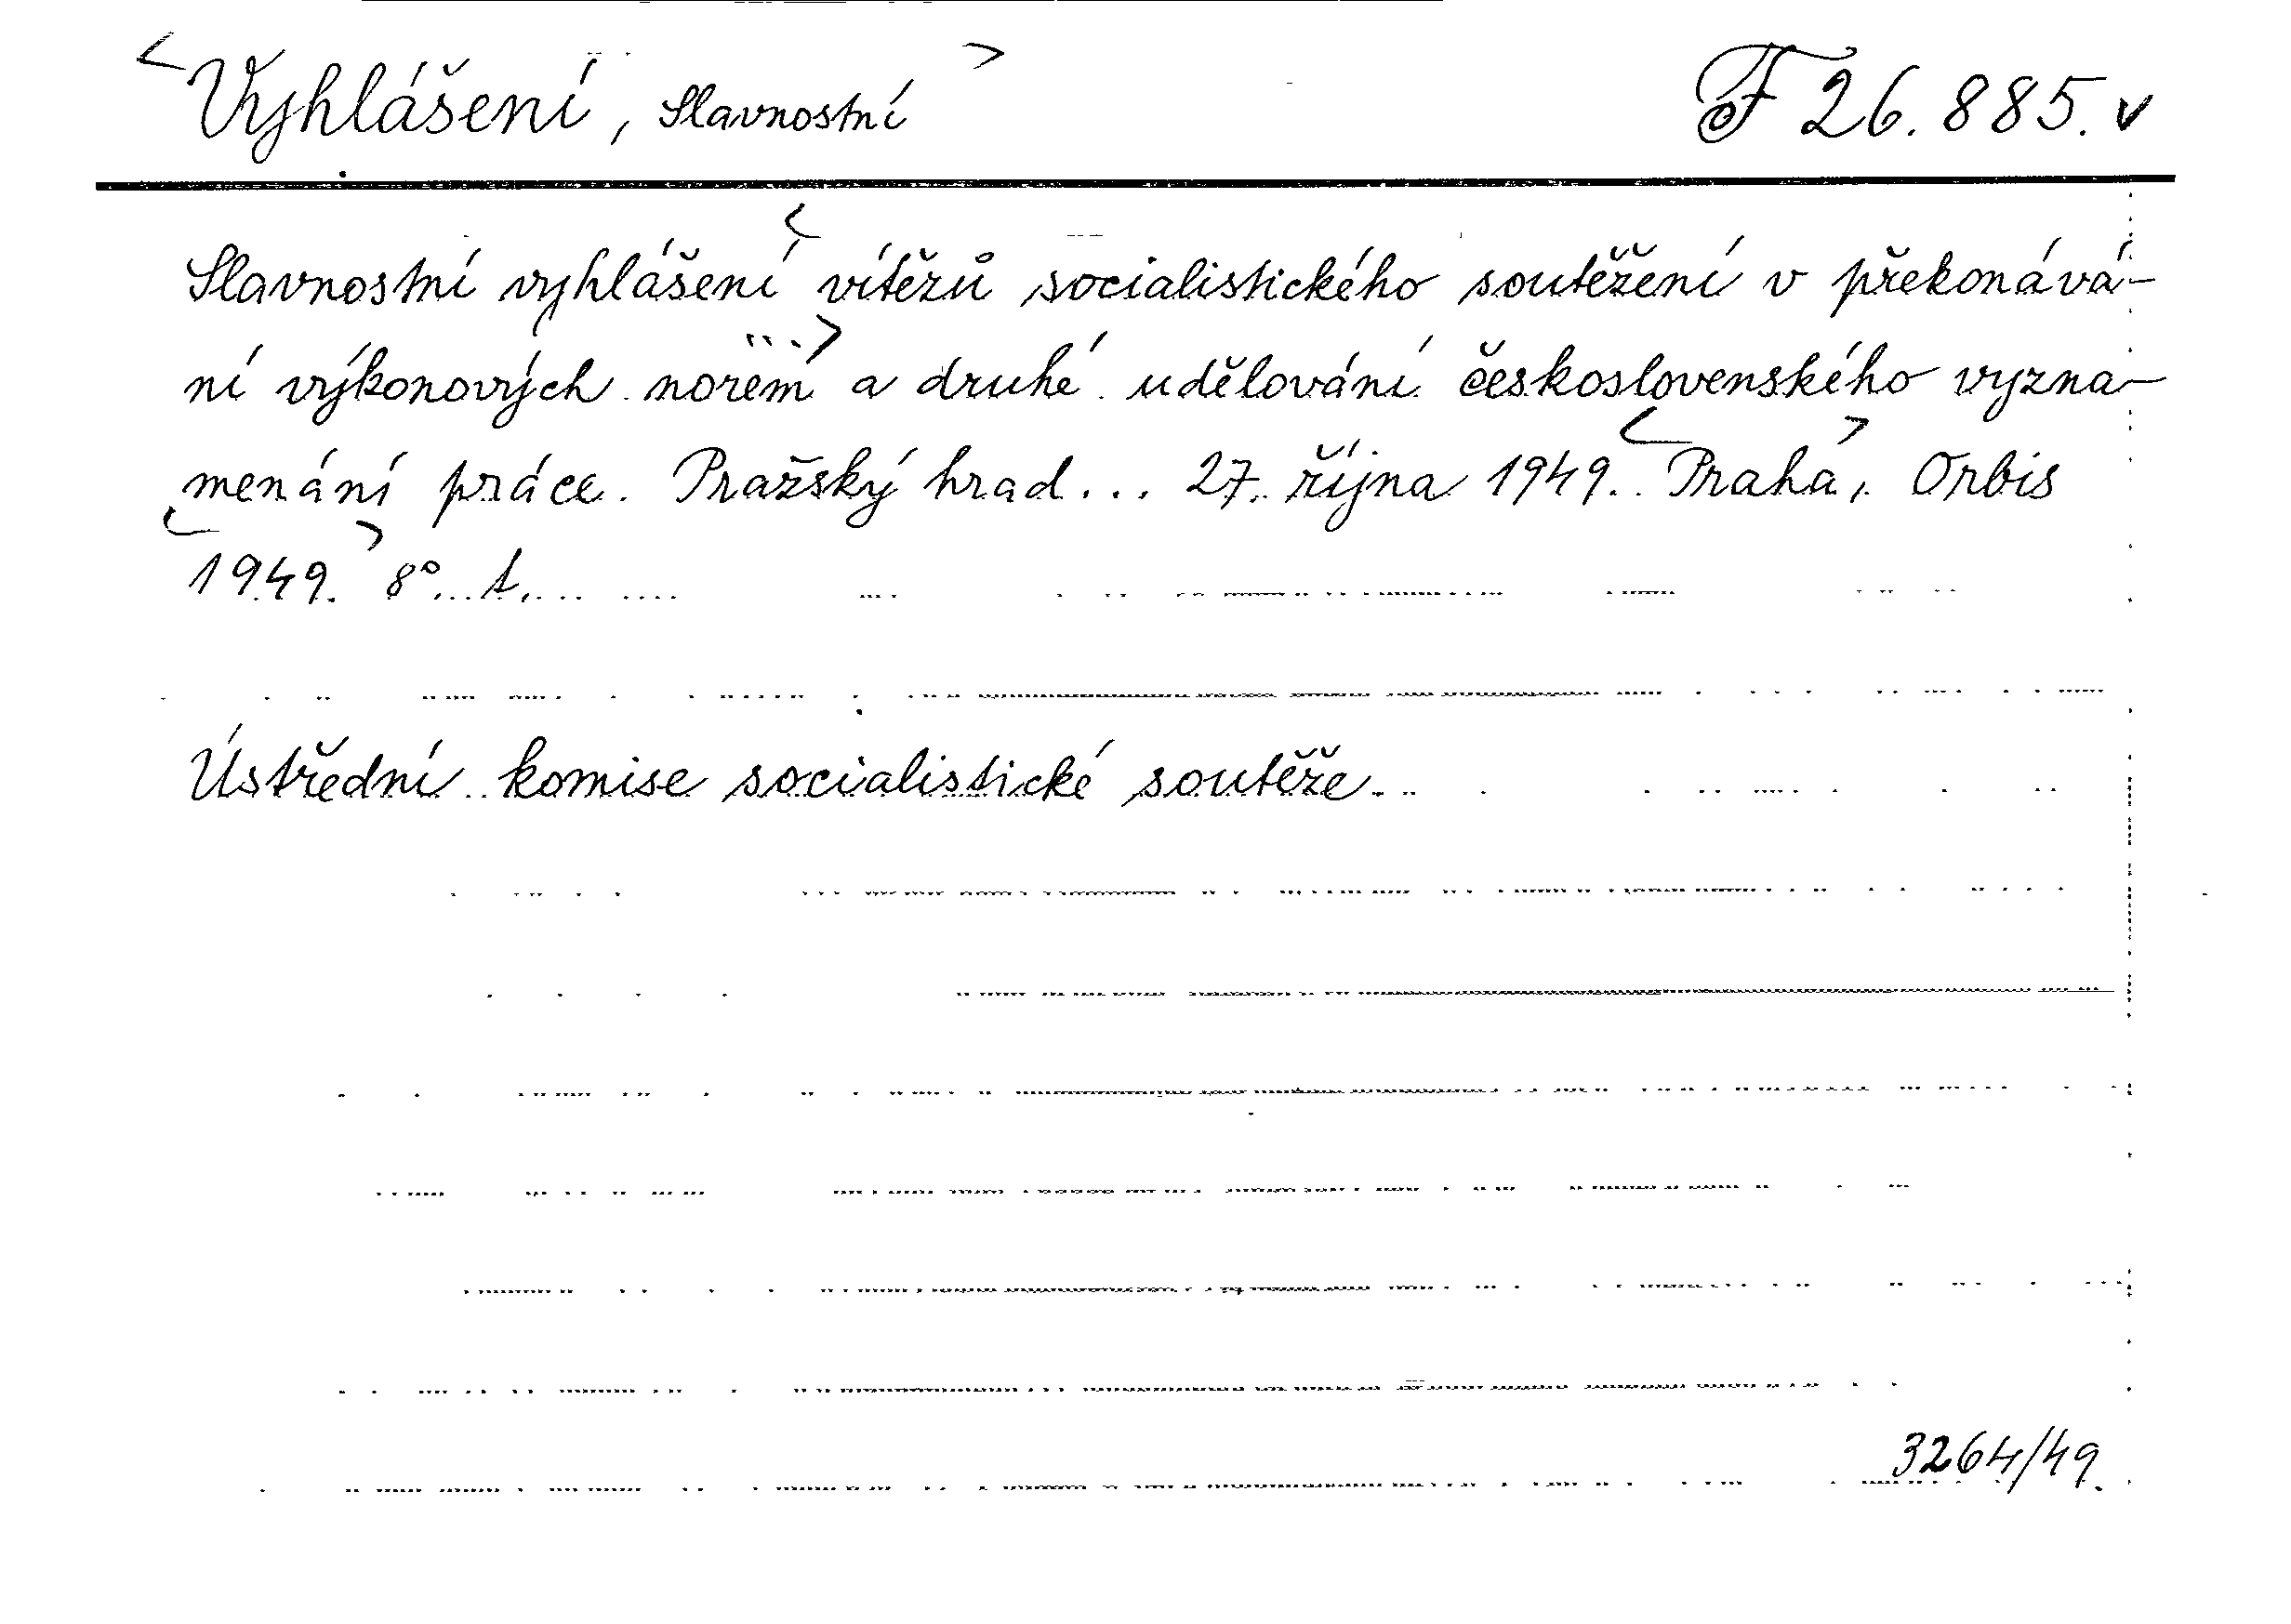 <Vyhlášení, Slavnostní> F 26.885. v
Slavnostní vyhlášení <vítězů socialistického soutěžení v překonává-
ní výkonových norem ...> a druhé udělování československého vyzna-
menání práce. Pražský hrad... 27. října 1949. <Praha>, Orbis
<1949.> 8°.
Ústřední komise socialistické soutěže.
3264/49.